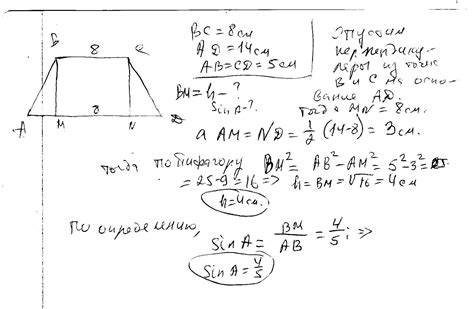 B 8 C
8
A M N D
BC = 8см
AD = 14см
AB = CD = 5см
BM = h - ?
sin A - ?
Опустим
перпендику-
ляры из точек
B и C на осно-
вание AD.
тогда MN = 8см.
а AM = ND = 1/2 (14-8) = 3 см.
тогда по Пифагору BM² = AB² - AM² = 5² - 3² =
= 25 - 9 = 16 => h = BM = √16 = 4см
h = 4см.
По определению,
sin A = BM/AB = 4/5; =>
sin A = 4/5